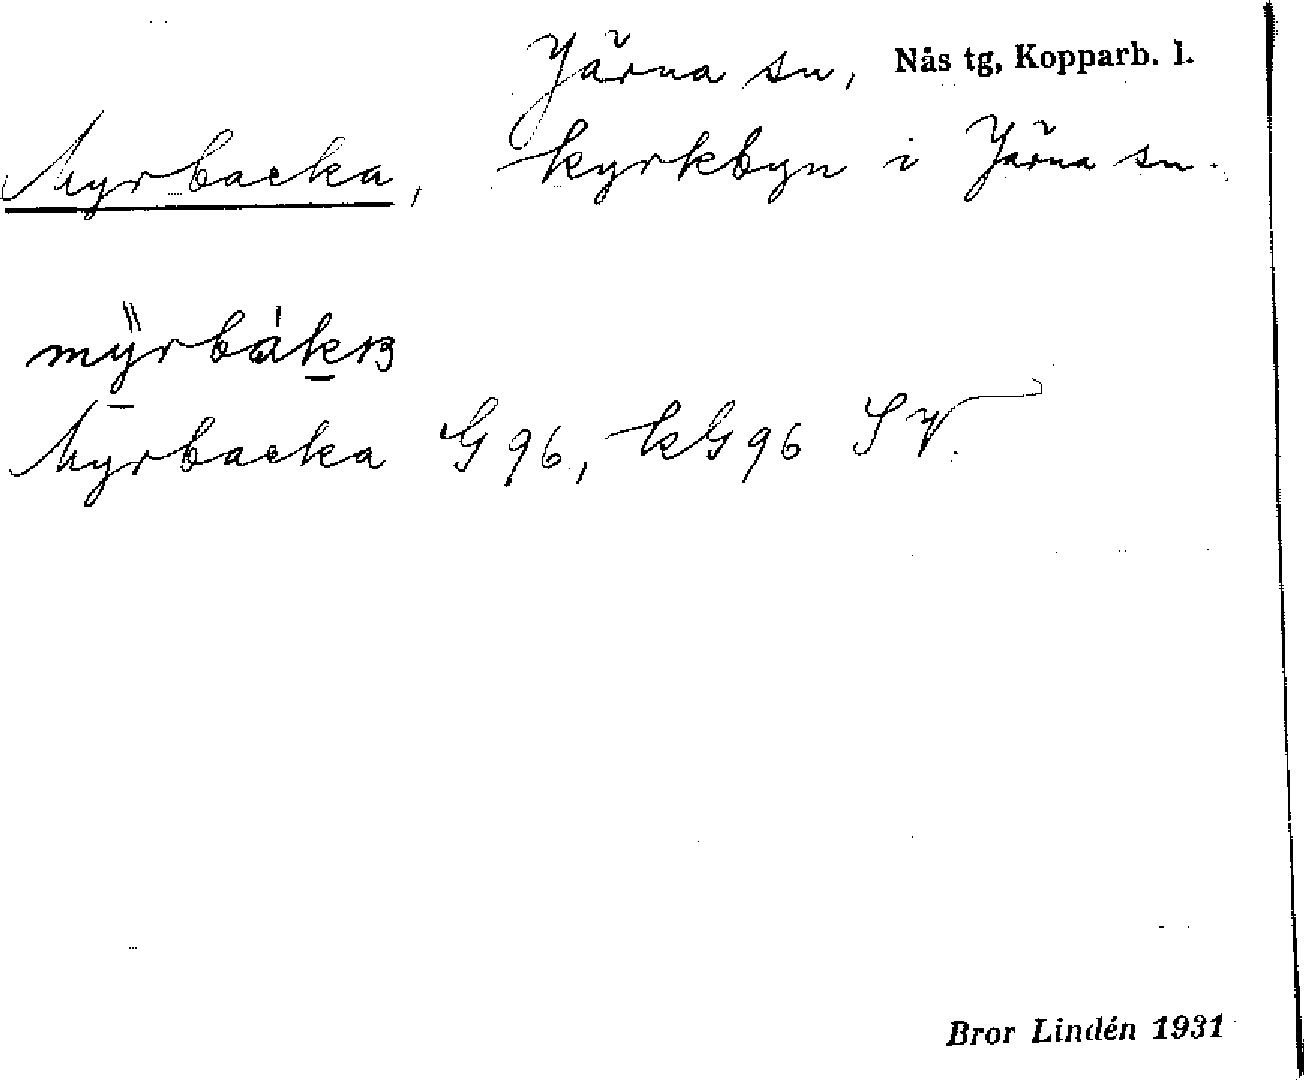 Järna sn, Nås tg, Kopparb. l.
Myrbacka, kyrkbyn i Järna sn.
Myrbacka G 96, kG 96 SV.
Bror Lindén 1931